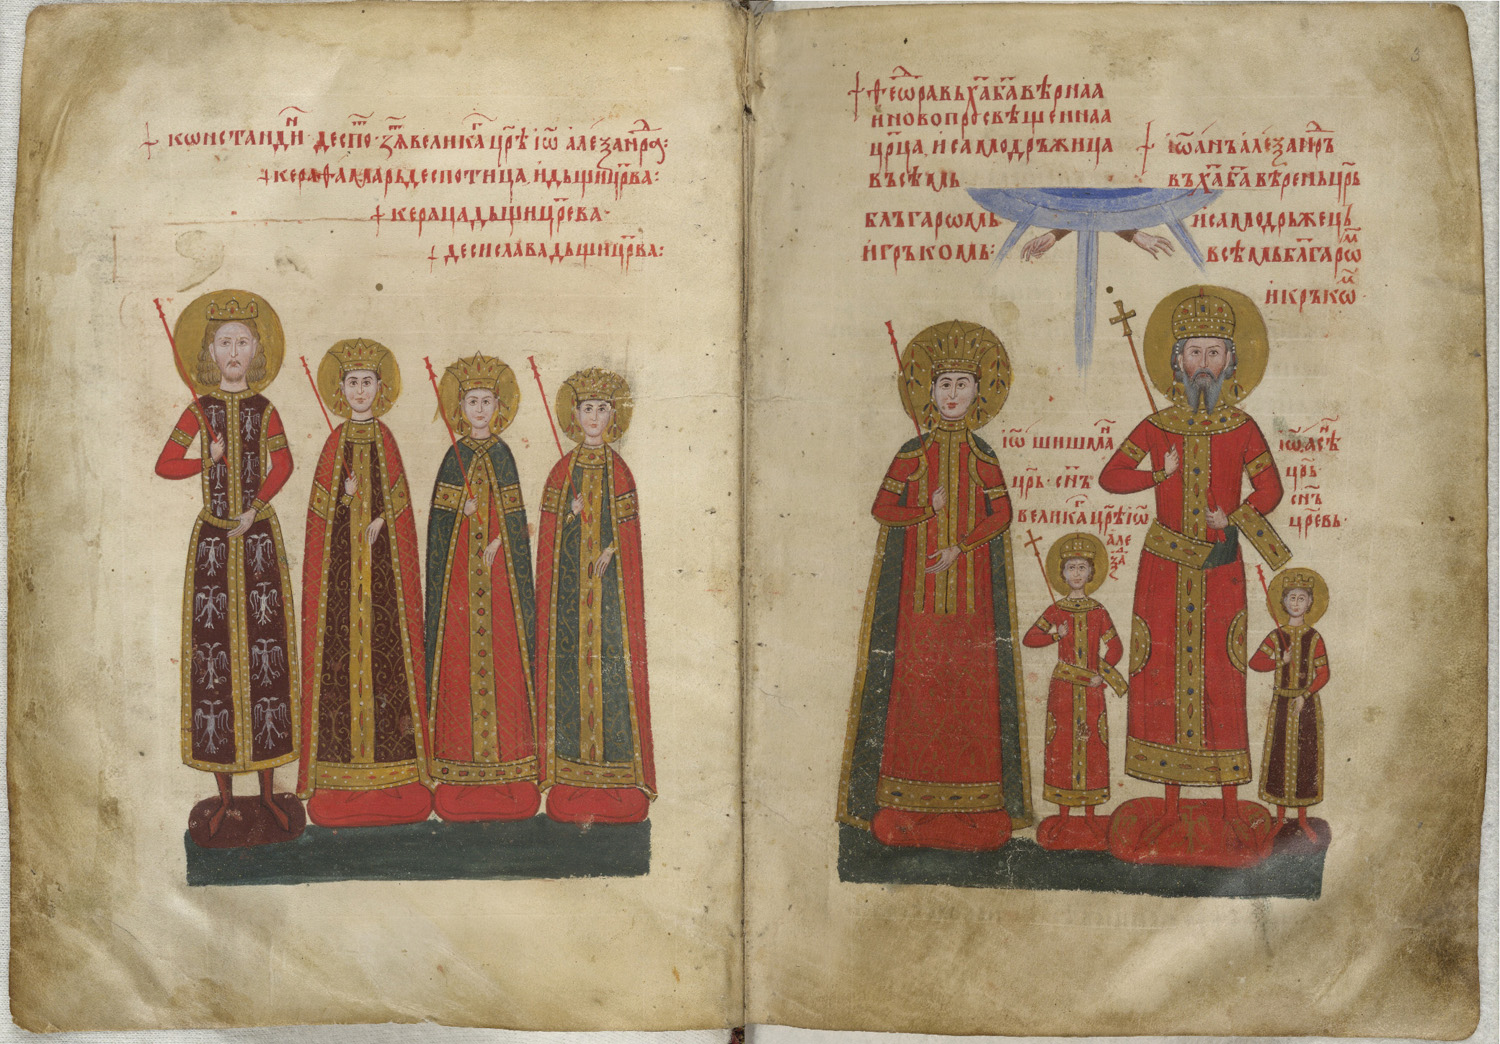 † кѡнстандн҃ деспо ꙁѧ великаг҃ цр҃ѣ іѡ҃ алеѯанрд
† кераѳамарь деспотица, и дъщи цр҃ва:
† кераца дъщи цр҃ева
† десислава дъщи цр҃ва:
† ѳеѡ҃ра въ х҃а б҃а вѣрнаа
и новопросвѣщеннаа
цр҃ца, и самодръжица
въсѣмь
блъгарѡмь
и гръкомь:
† іѡ҃аннъ алеѯанръ
въ х҃а б҃а вѣрень цр҃ь
и самодръжець
всѣмь блъгарѡм
и гръкѡм
іѡ҃ шишма҃н
цр҃ь с҃нъ
великаг҃ цр҃ѣ іѡ҃
але
ѯа
іѡ҃ асѣ҃н
цр҃ь
с҃нъ
цр҃евь
3